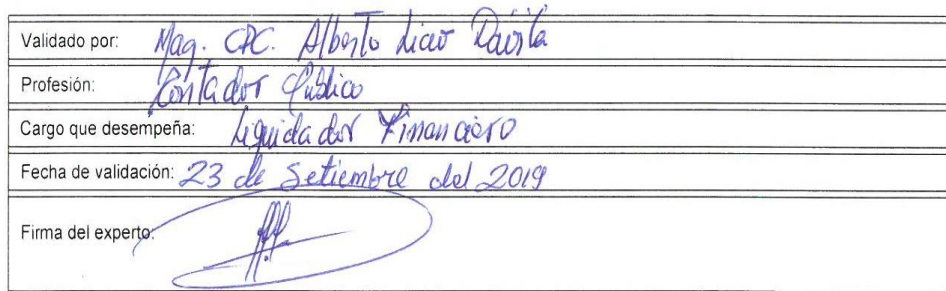 Validado por: Mag. CPC. Alberto Dávila
Profesión: Contador Público
Cargo que desempeña: Liquidador Financiero
Fecha de validación: 23 de Setiembre del 2019
Firma del experto: